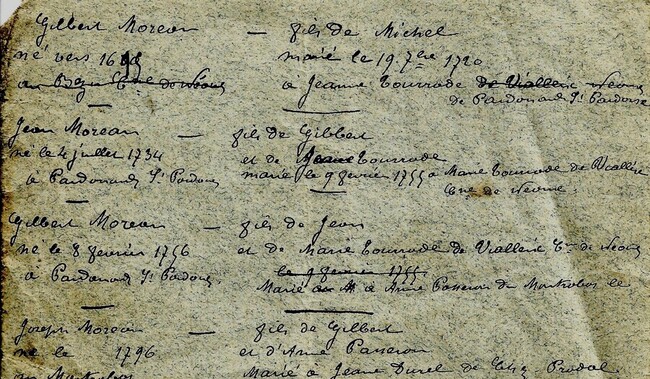 Gilbert Moreau — fils de Michel
né vers 1695 marié le 19 7bre 1720
au Cne de Néoux à Jeanne Tourrade de Viallerie Néoux
de Pardonand St Pardoux
Jean Moreau — fils de Gilbert
né le 4 juillet 1734 et de Jeanne Tourrade
à Pardonand St Pardoux marié le 9 février 1755 à Marie Tourrade de Viallerie
Cne de Néoux.
Gilbert Moreau — fils de Jean
né le 8 février 1756 et de Marie Tourrade de Viallerie Cne de Néoux
à Pardonand St Pardoux le 9 février 1755
Marié à Anne Passeron de le
Joseph Moreau — fils de Gilbert
né le 1796 et d'Anne Passeron
au Marié à Jeanne Durel de